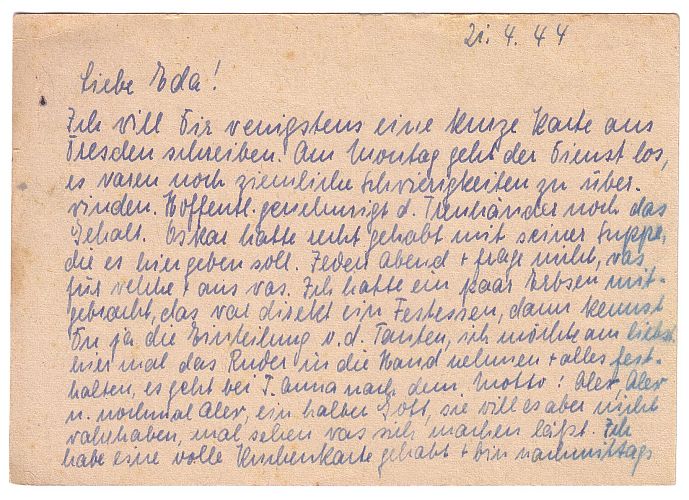 21. 4. 44
Liebe Eda!
Ich will Dir wenigstens eine kurze Karte aus
Dresden schreiben. Am Montag geht der Dienst los,
es waren noch ziemliche Schwierigkeiten zu über-
winden. Hoffentl. genehmigt d. Treuhänder noch das
Gehalt. Oskar hatte recht gehabt mit seiner Suppe,
die es hier geben soll. Jeden Abend + frage nicht, was
für welche + aus was. Ich hatte ein paar Erbsen mit-
gebracht, das war direkt ein Festessen, dann kennst
Du ja die Einteilung v. d. Tanten, ich möchte am liebst.
hier mal das Ruder in die Hand nehmen + alles fest-
halten, es geht bei T. Anna nach dem Motto: Alex Alex
u. nochmal Alex, ein halber Gott, sie will es aber nicht
wahrhaben, mal sehen was sich machen läßt. Ich
habe eine volle Kuchenkarte gehabt + bin nachmittags